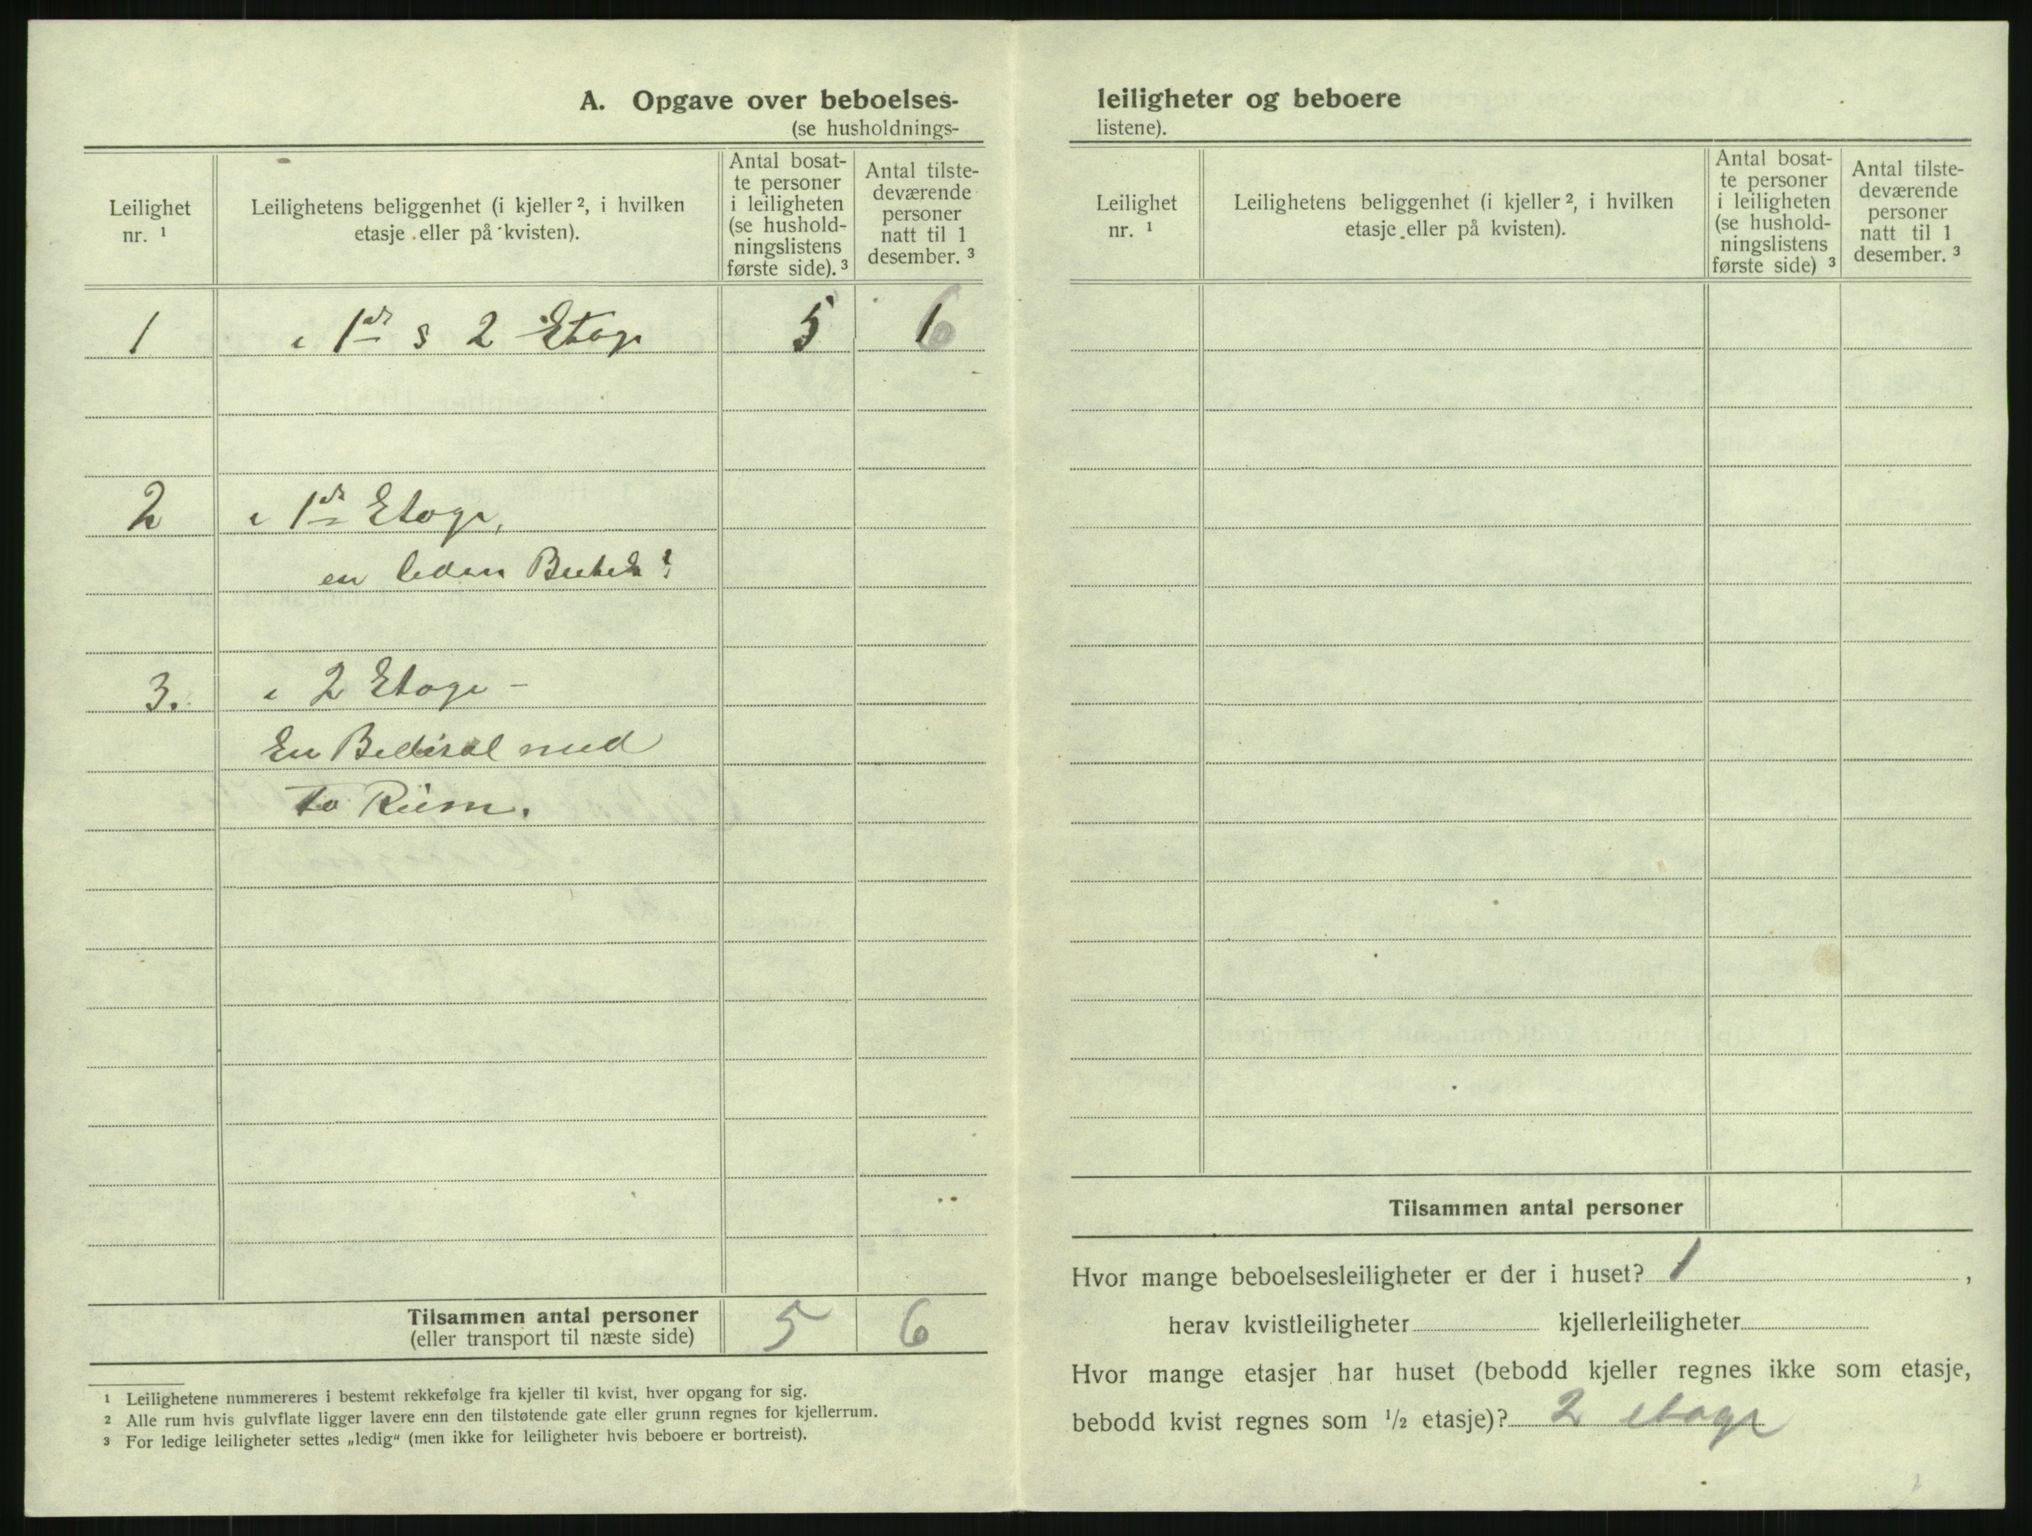 A. Opgave over beboelses-
(se husholdnings-
Leilighet
nr. ¹
Leilighetens beliggenhet (i kjeller ², i hvilken
etasje eller på kvisten).
Antal bosat-
te personer
i leiligheten
(se hushold-
ningslistens
første side). ³
Antal tilste-
deværende
personer
natt til 1
desember. ³
1 i 1ste & 2 Etage 5 6
2 i 1ste Etage,
en leden
3. i 2 Etage –
En Bedesal med
to Rum.
Tilsammen antal personer 5 6
(eller transport til næste side)
¹ Leilighetene nummereres i bestemt rekkefølge fra kjeller til kvist, hver opgang for sig.
² Alle rum hvis gulvflate ligger lavere enn den tilstøtende gate eller grunn regnes for kjellerrum.
³ For ledige leiligheter settes „ledig“ (men ikke for leiligheter hvis beboere er bortreist).
leiligheter og beboere
listene).
Leilighet
nr. ¹
Leilighetens beliggenhet (i kjeller ², i hvilken
etasje eller på kvisten).
Antal bosat-
te personer
i leiligheten
(se hushold-
ningslistens
første side) ³
Antal tilste-
deværende
personer
natt til 1
desember. ³
Tilsammen antal personer
Hvor mange beboelsesleiligheter er der i huset? 1 ,
herav kvistleiligheter kjellerleiligheter
Hvor mange etasjer har huset (bebodd kjeller regnes ikke som etasje,
bebodd kvist regnes som ¹/₂ etasje)? 2 etage